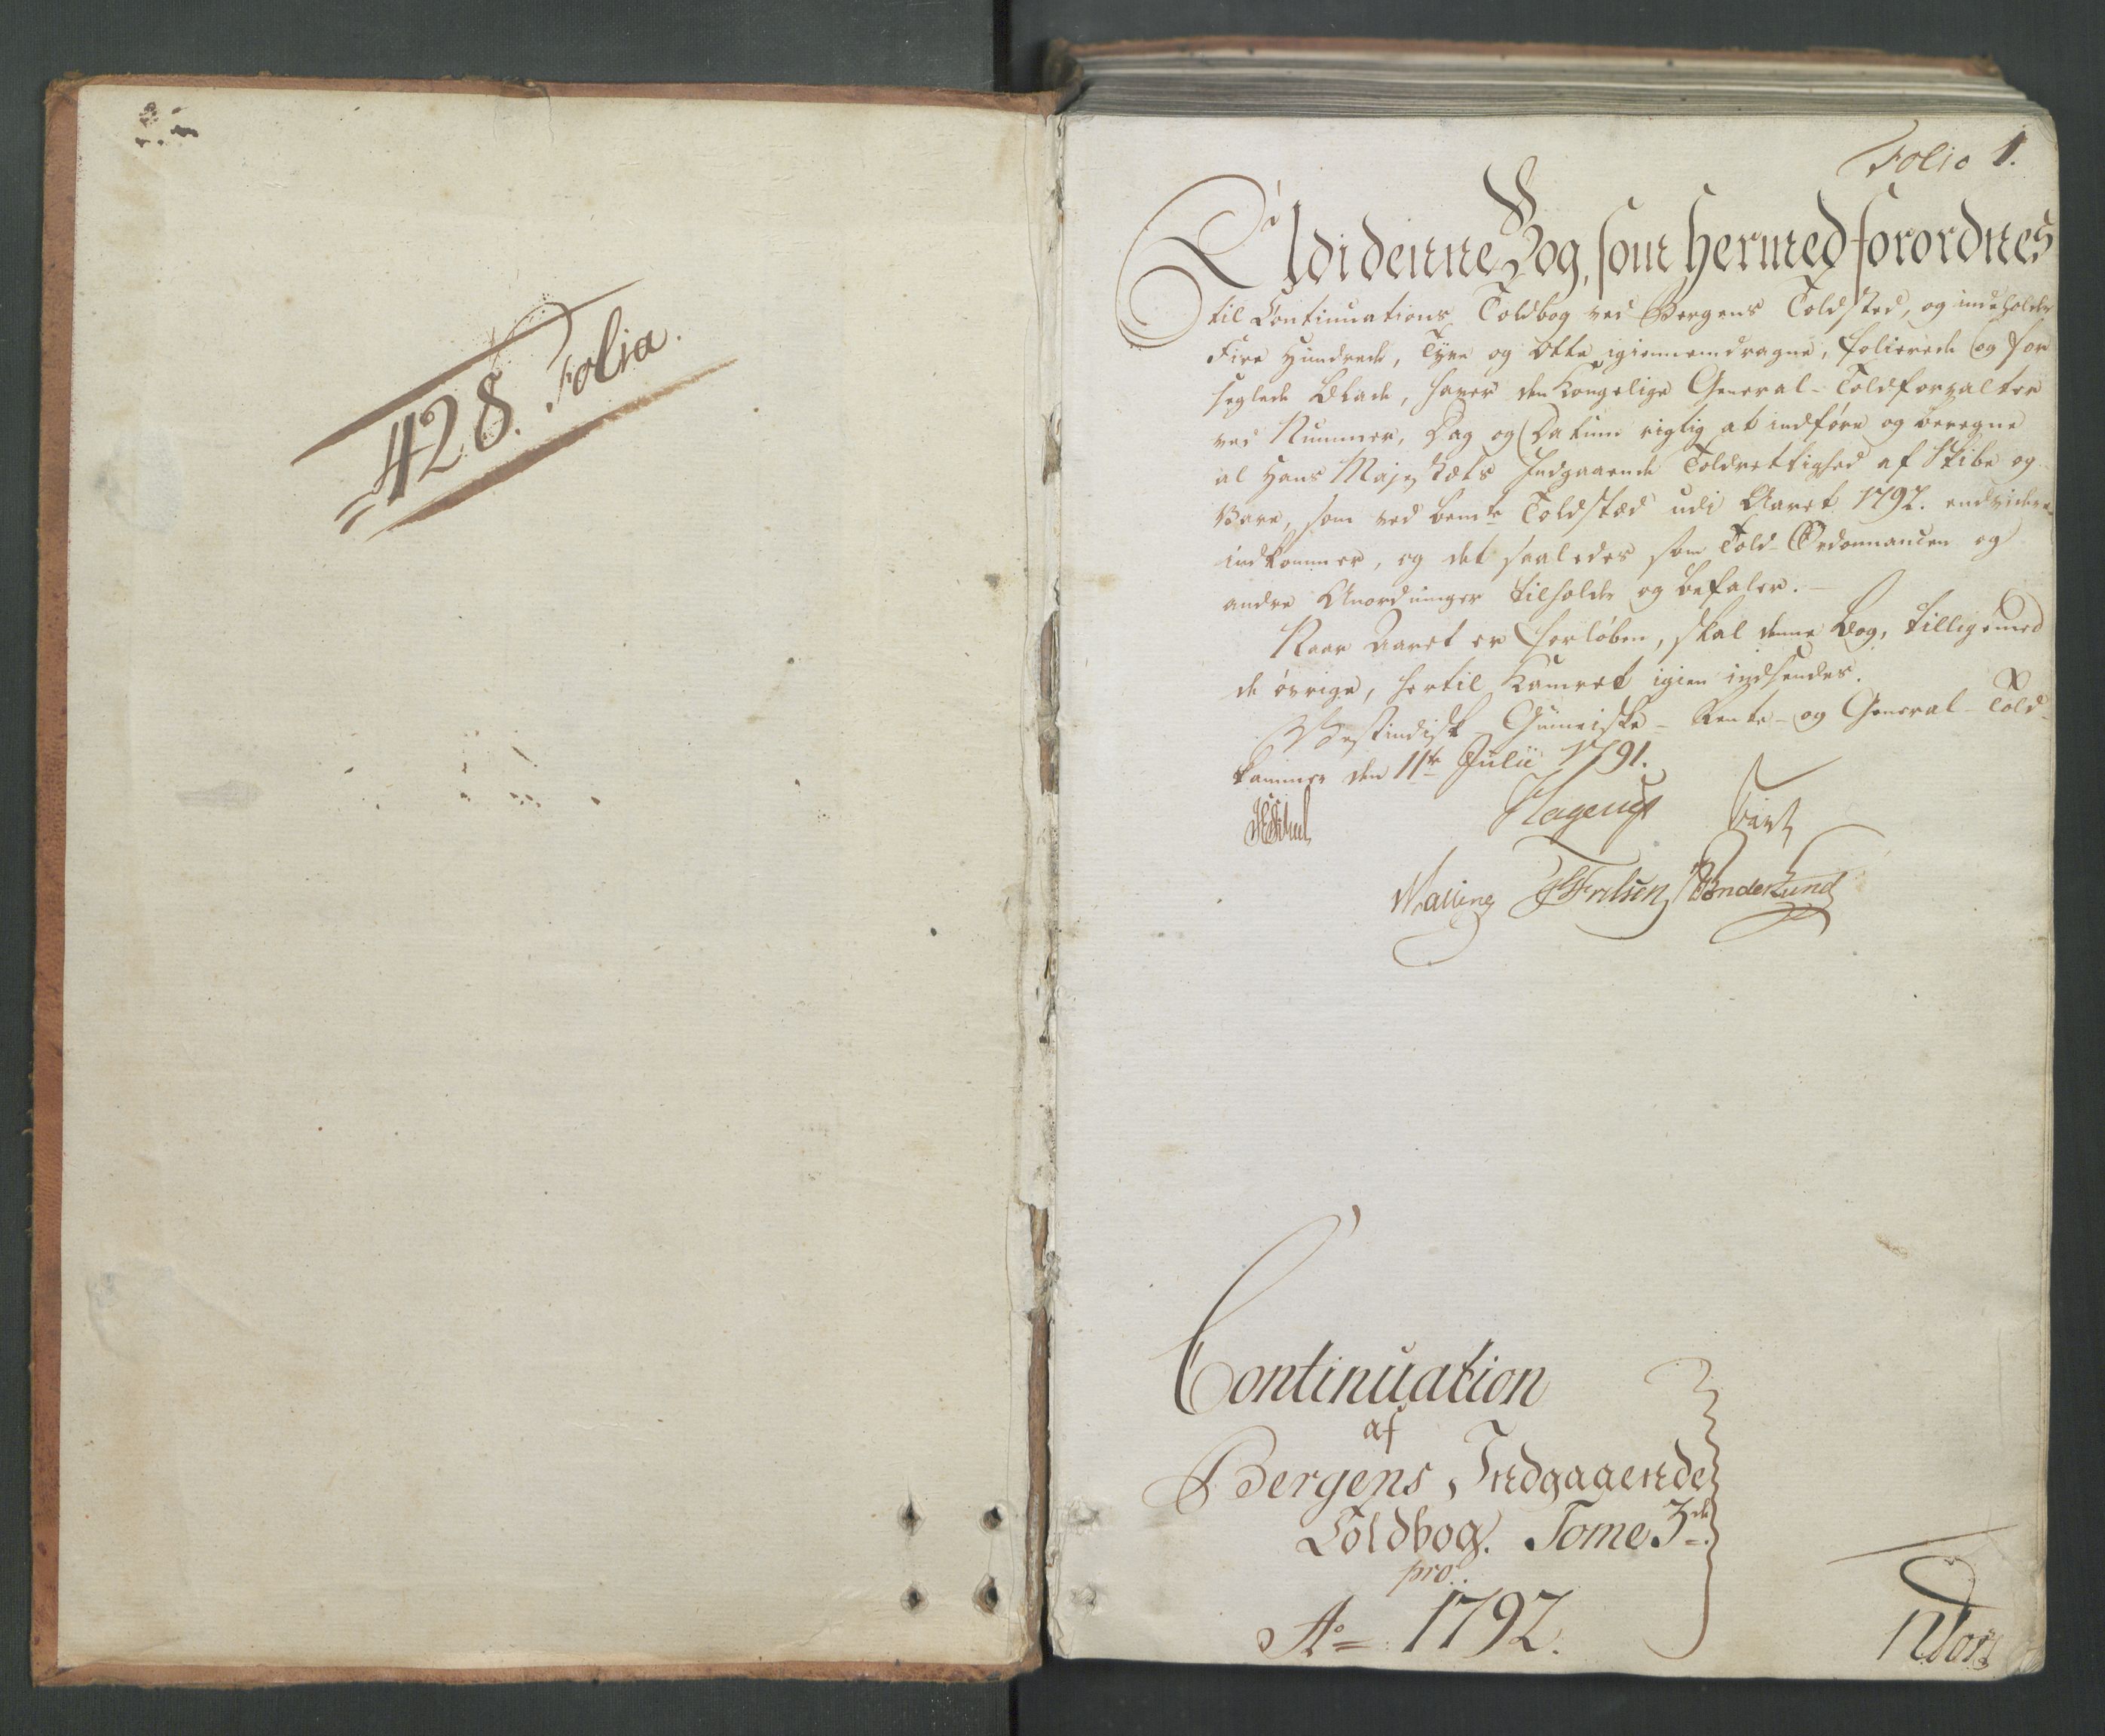 428. Folia.
Folio 1.
Udi denne Bog, som hermed forordnes
til Continuations Toldbog ved Bergens Toldsted, og indeholder
Fire Hundrede, Tyve og Otte igiennemdragne, folierede og for
seglede Blade, haver den Kongelige General-Toldforvalter
ved Nummer, Dag og Datum rigtig at indføre og beregne
al Hans Majestæts Indgaaende Toldrettighed af Skibe og
Vare, som ved bemte Toldstæd udi Aaret 1792. endvidere
indkommer, og det saaledes som Told-Ordonnancen og
andre Anordninger tilholde og befaler.
Naar Aaret er forløben, skal denne Bog, tilligemed
de øvrige, hertil Kamret igien indsendes.
Vestindisk-Guineiske-Rente- og General-Told-
kammer den 11te Julii 1791.
Hagerup
Wassing
Continuation
af
Bergens Indgaaende
Toldbog. Tome 3de
pro.
Ao 1792.